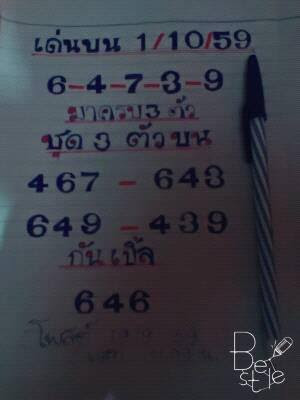 เด่นบน 1/10/59
6-4-7-3-9
มาครบ 3 ตัว
ชุด 3 ตัวบน
467 - 643
649 - 439
กันเบิ้ล
646
โพสต์
Be style